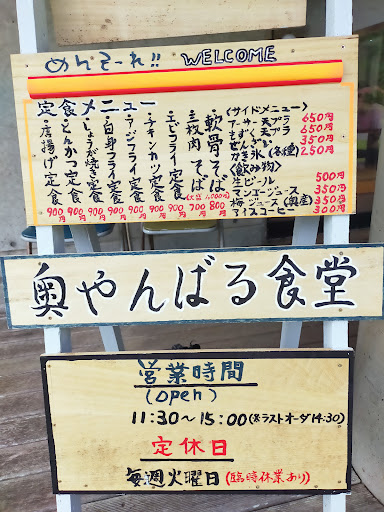 めんそーれ!! WELCOME
定食メニュー
・軟骨そば 800円
・三枚肉そば 700円 (大盛 1,000円)
・エビフライ定食 900円
・チキンカツ定食 900円
・アジフライ定食 900円
・白身フライ定食 900円
・しょうが焼き定食 900円
・とんかつ定食 900円
・唐揚げ定食 900円
(サイドメニュー)
アーサー天プラ 650円
もずく天プラ 650円
ぜんざい 350円
かき氷(各種) 250円
(飲み物)
生ビール 500円
ジュース 350円
梅ジュース(奥産) 350円
アイスコーヒー 300円
奥やんばる食堂
営業時間
(open)
11:30~15:00(※ラストオーダ14:30)
定休日
毎週火曜日(臨時休業あり)